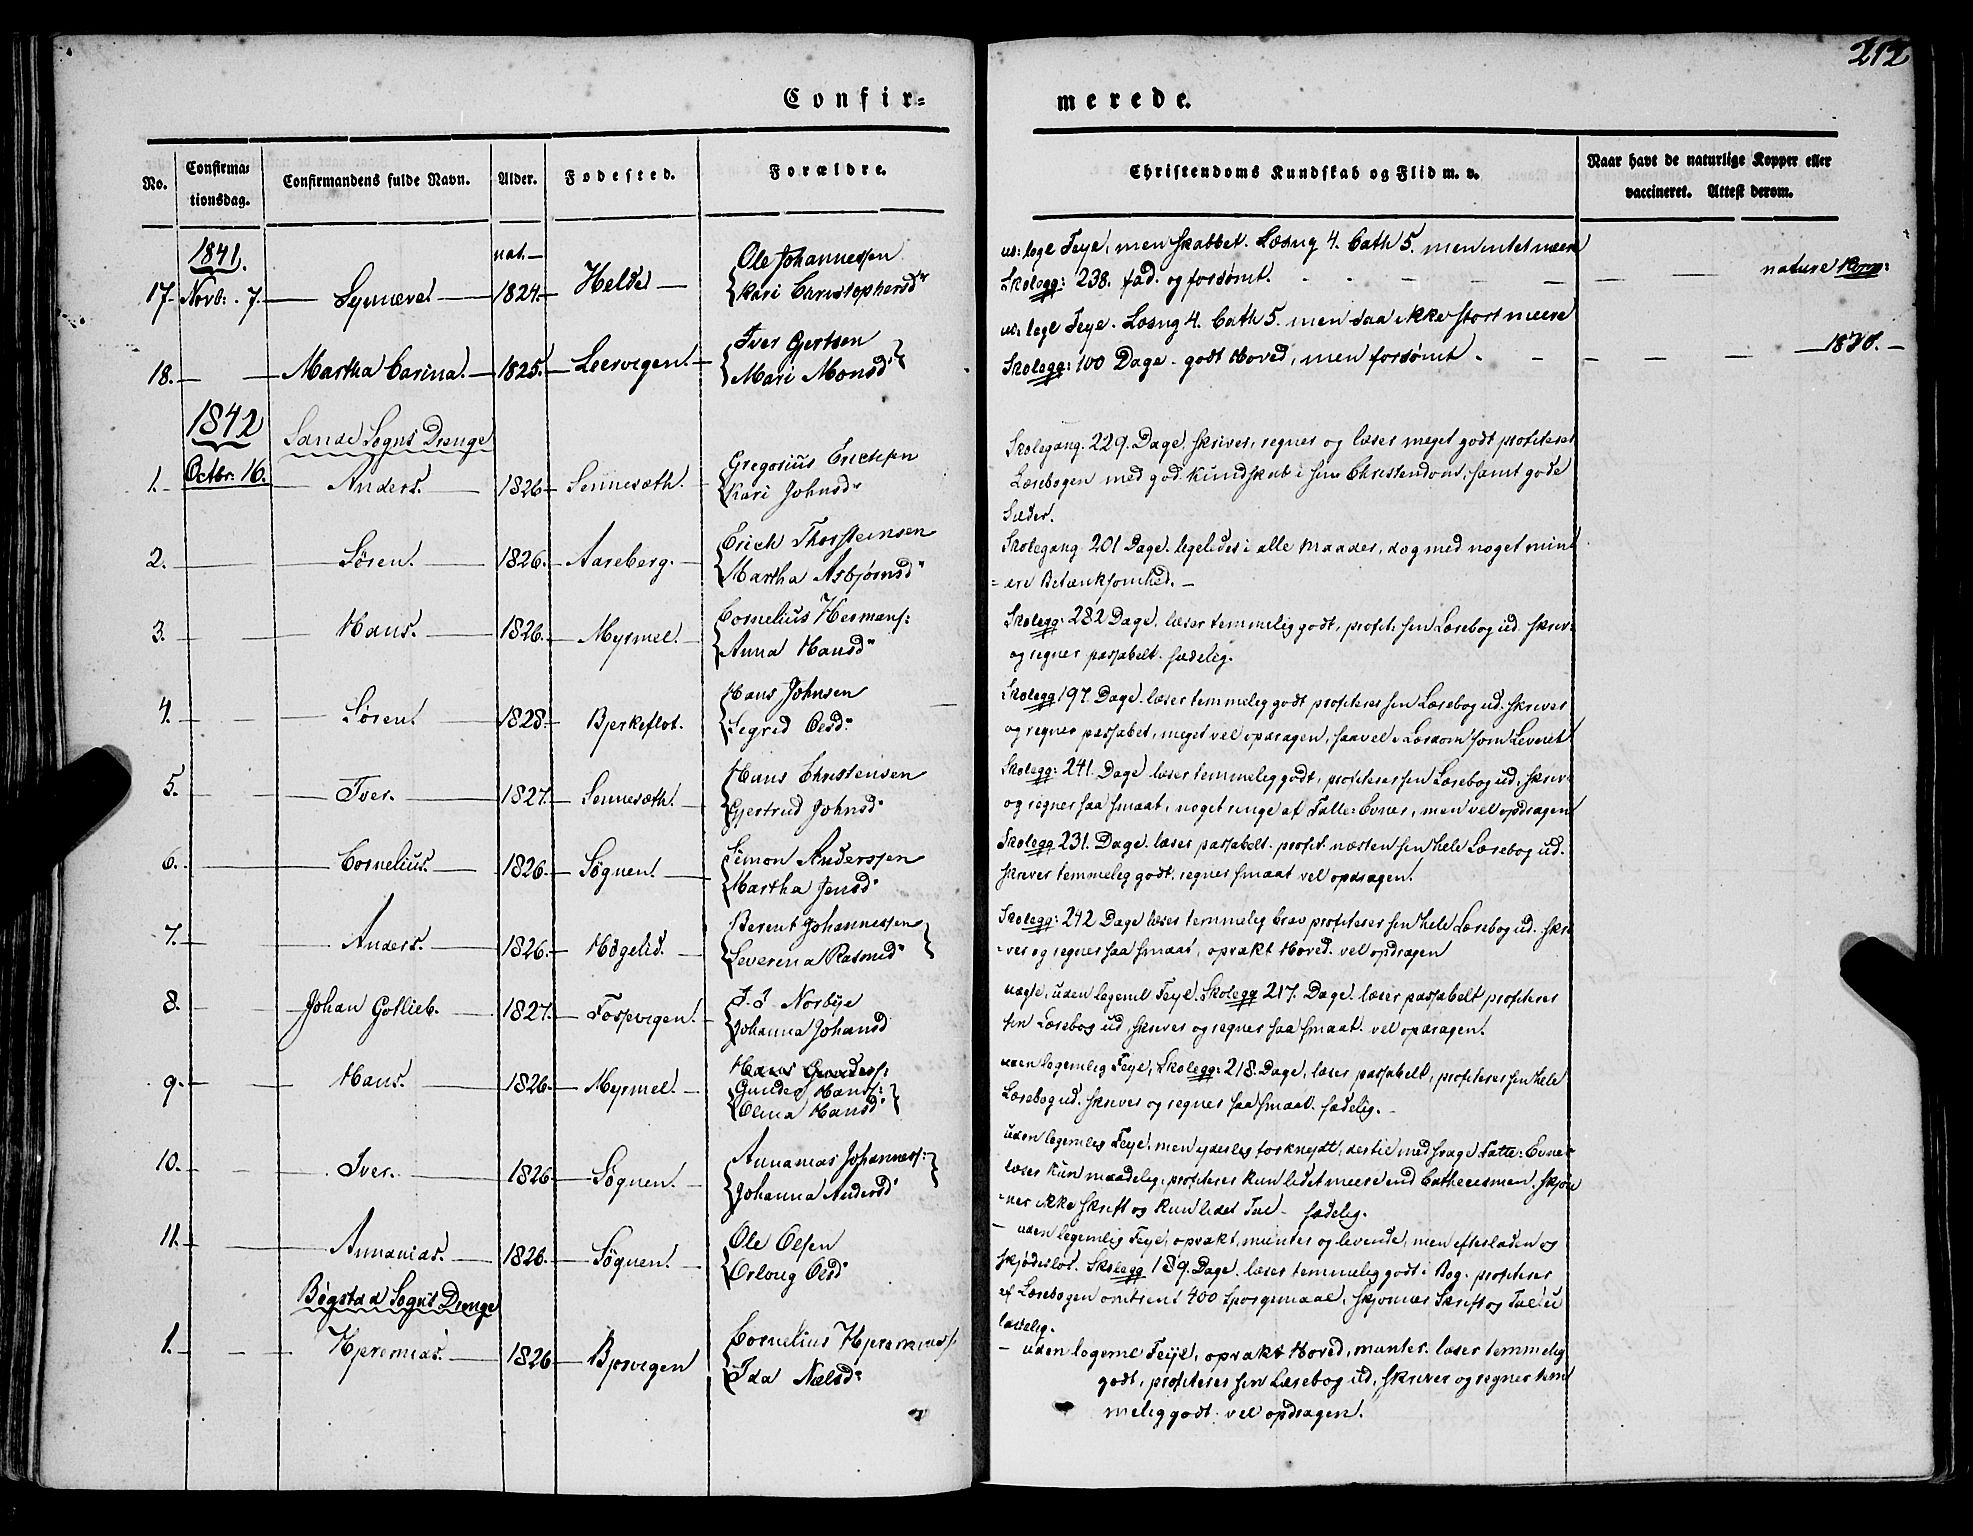 212
Confir=
merede.
No.
Confirma=
tionsdag.
Confirmandens fulde Navn.
Alder.
Fødested.
Forældre.
Christendoms Kundskab og Flid m. v.
Naar havt de naturlige Kopper eller
vaccineret. Attest derom.
1841. nat.— Ole Johannessen
17. Novb: 7. — Synneve — 1824. — Helde — Kari Christophersdr
legl Feyl, men skabbet. Læsng 4. Cath 5. men intet meere
Skolegg: 238. fad. og forsømt. — — — nature Kopp:
Iver Gertsen
18. — — Martha Carina. — 1825. — Leervigen. — Mari Monsd
legl Feyl. Læsng 4. Cath 5. men saa ikke stort meere
Skolegg: 100 Dage. godt Hoved, men forsømt. — — — — 18 —
1842 Sande Sogns Drenge
Octbr. 16.
Gregorius Erichsen
1. — Anders. — 1826 — Sennesæth. — Kari Johnsd
Skolegang. 229. Dage. skriver, regner og læser meget godt profiterer
Læsebogen med god Kundskab i sin Christendom, samt gode
Sæder.
Erich Thorsteinsen
2. — Søren. — 1826. — Aareberg. — Martha Asbjørnsd
Skolegang 201 Dage. ligeledes i alle Maader, dog med noget mind
= ere Betænksomhed. —
Cornelius Hermans:
3. — — Hans. — 1826. — Myrmel. — Anna Hansd
Skolegg: 282 Dage. læser temmelig godt, profit. sin Læsebog ud. skriv-
og regner passabelt. sædelig.
Hans Johnsen
4. — — Søren. — 1828. — Bjerkeflot. Sigrid Olsd.
Skolegg 197. Dage. læser temmelig godt profiterer sin Læsebog ud. skriver
og regner passabet, meget vel opdragen, saavel i Lærdom som Levnet
Hans Christensen
5. — Iver. — 1827. — Sennesæth. — Gjertrud Johnsd
Skolegg: 241. Dage læser temmelig godt, profiterer sin Læsebog ud, skriv-
og regner saa smaat, noget ringe af Fatte-Evner, men vel opdragen
Simon Anderssen
6. — Cornelius. — 1826. — Søgnen. — Martha Jensd
Skolegg 231. Dage. læser passabelt. profit. næsten sin hele Læsebog ud.
skriver temmelig godt, regner smaat vel opdragen.
Berent Johannessen
7. — Anders. — 1826. — Høgelid. — Severina Rasmusd
Skolegg: 242 Dage læser temmelig brav profiterer sin hele Læsebog ud. skri
-ver og regner saa smaat, opvakt Hoved. vel opdragen
J. J Norbye
8. — — Johan Gotlieb. — 1827. — Fossevigen. — Johanna Johansd
uægte, uden legeml Feyl. Skolegg 217. Dage. læser passabelt profiterer
sin Læsebog ud, skriver og regner saa smaat. vel opdragen.
Hans Gundes:
Gunder Hans:
9. — — Hans. — 1826. — Myrmel. — Olina Hansd
uden legemlig Feyl, Skolegg: 218. Dage, læser passabelt, profiterer sin hele
Læsebog ud. skriver og regner saa smaat. sædelig. —
Annanias Johanness:
10. — — Iver. — 1826 — Søgnen. — Johanna Andersd
uden legemlig Feyl, men yderlig forknydt, dertil med svage Fatte-Evner
læser kun maadelig, profiterer kun lidet meere end Cathecismen. skjøn
-ner ikke skrift og kun lidet Tal — sædelig.
Ole Olsen
11. — — Annanias. — 1826. — Søgnen. — Orloug Olsd
— uden legemlig Feyl, opvakt, munter og levende, men efterladen og
skjødesløs. Skolegg 189. Dage. læser temmelig godt i Bog. profiterer
af Læsebogen omtrent 400 Spørgsmaal, skjønner Skrift og Tal u
ladelig.
Bøgstad Sogns Drenge
Cornelius Hjeremiass.
1. — — Hjeremias. — 1826 — Bjorvigen — Ida Nælsd
— uden legeml Feyl, opvakt Hoved, munter. læser temmelig
godt, profiterer sin Læsebog ud, skriver og regner tem
melig godt. vel opdragen.